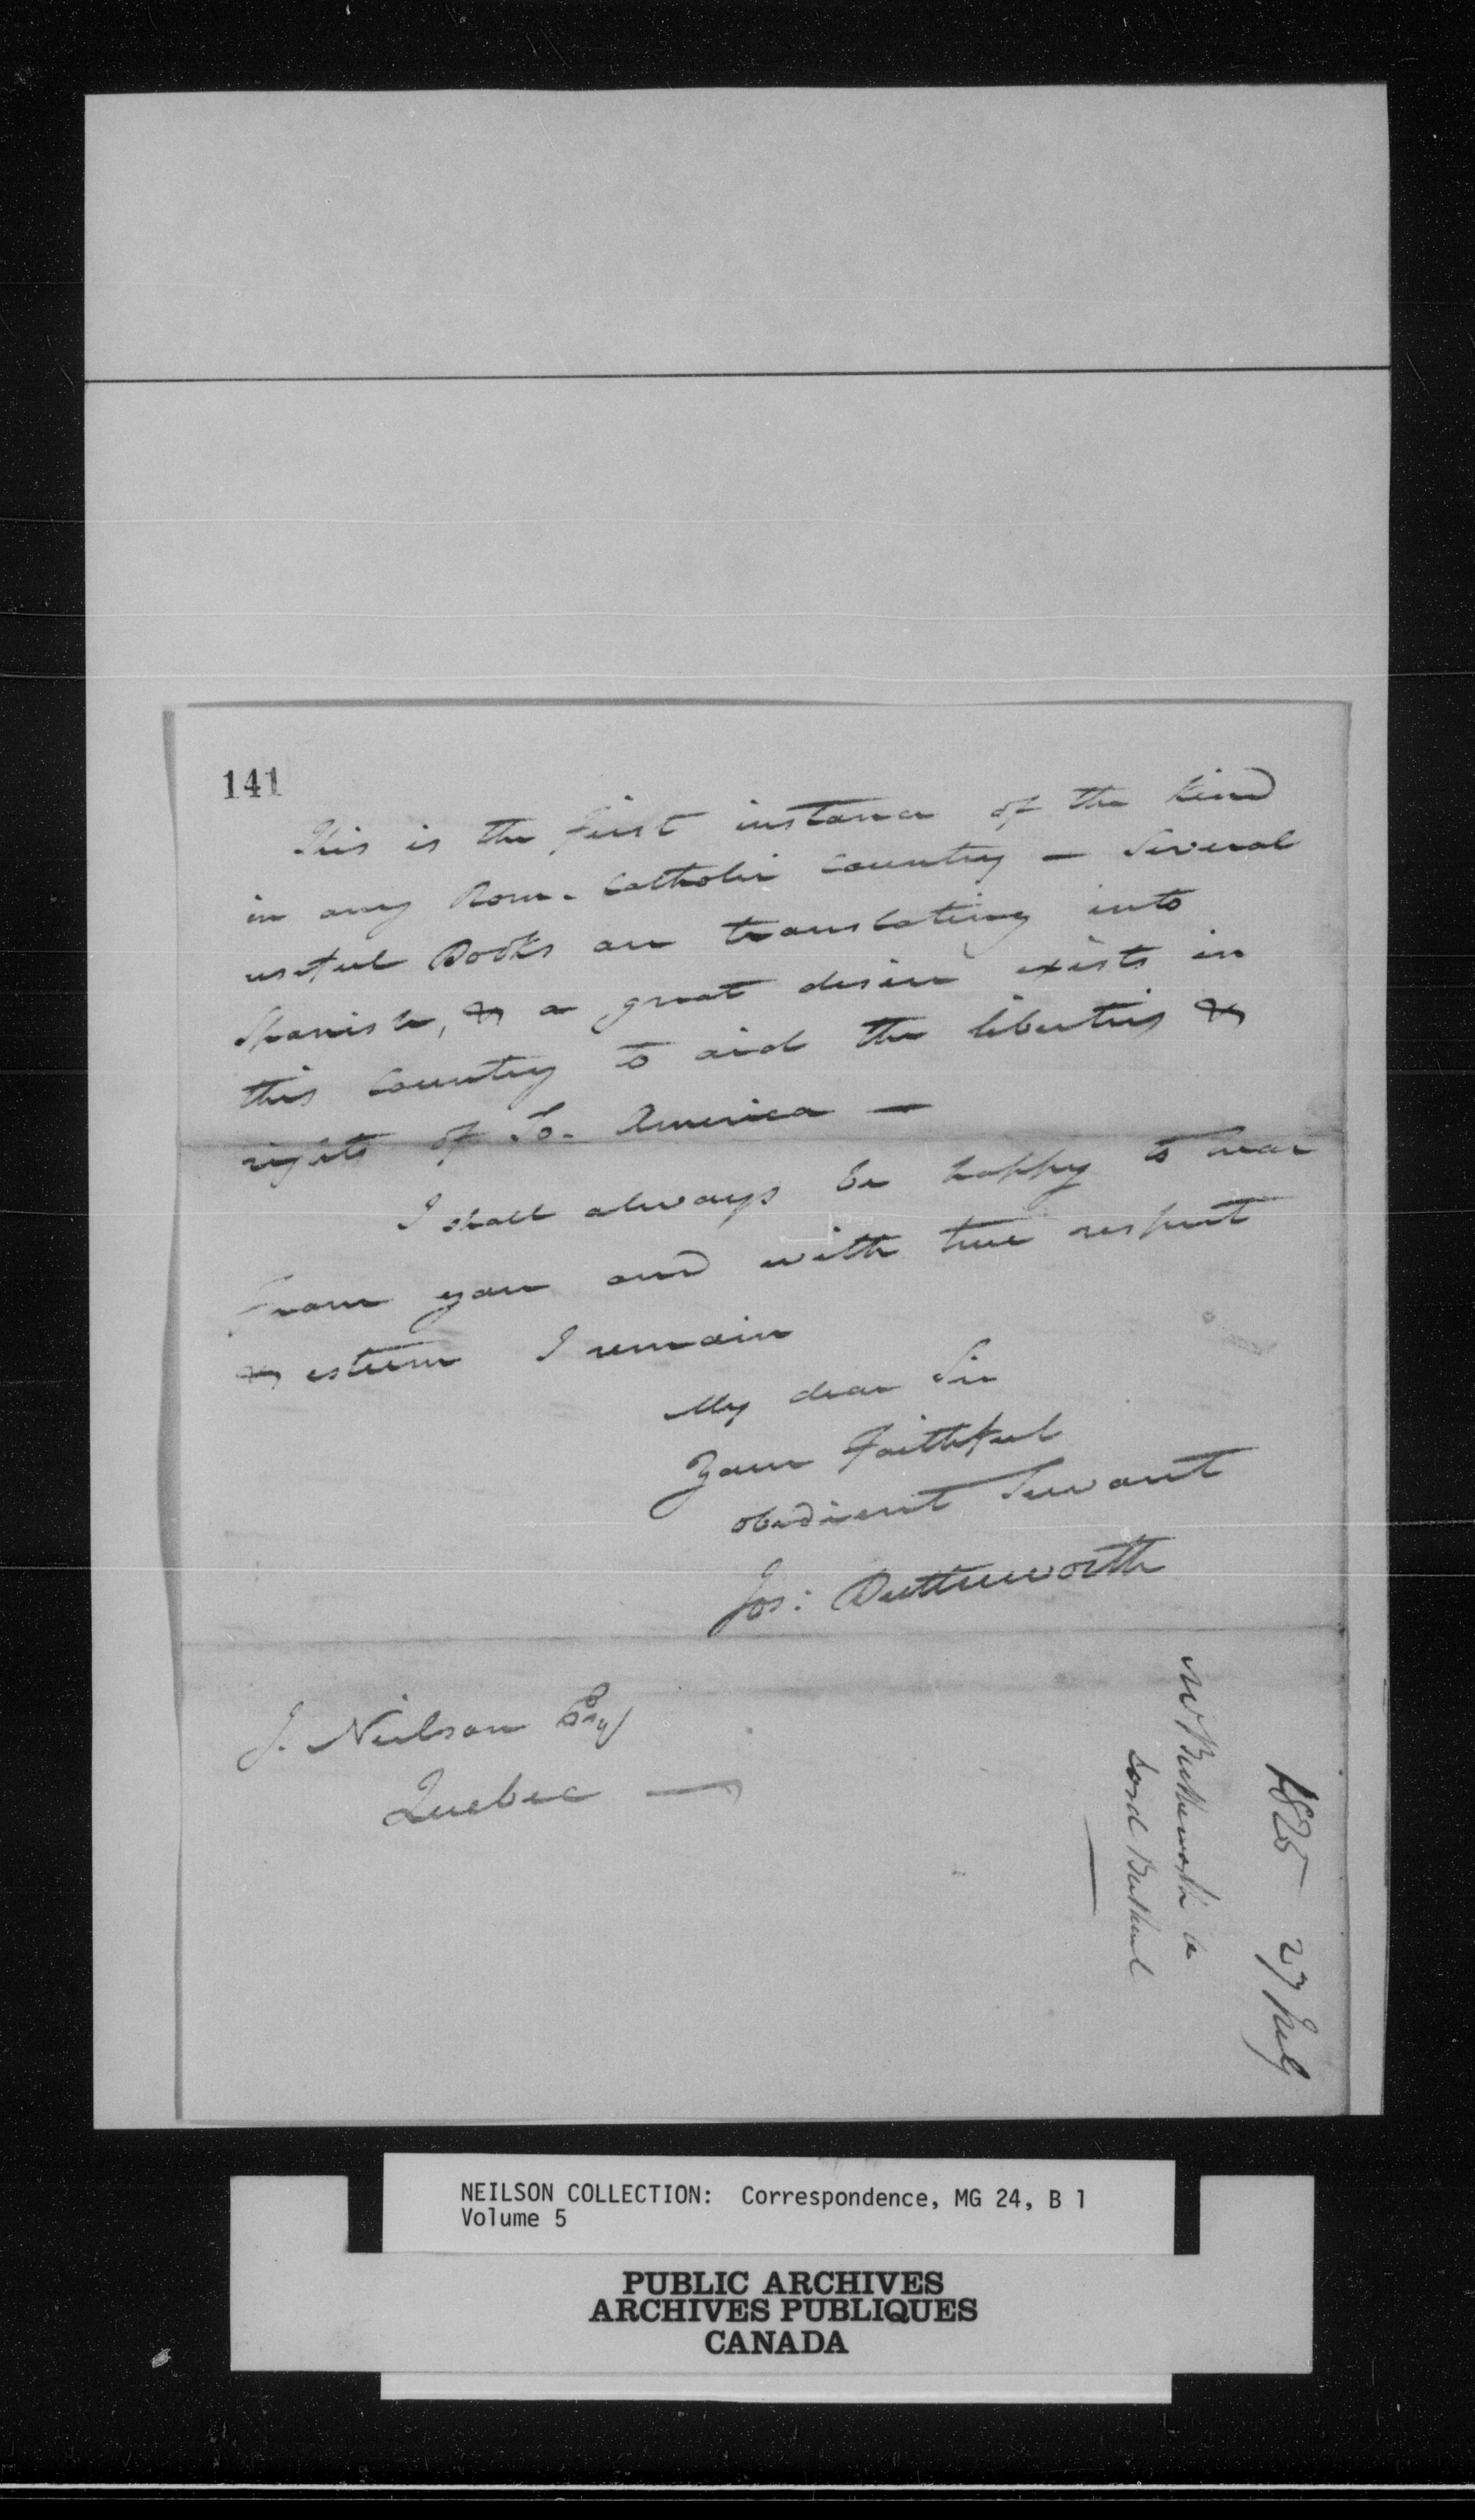 141
This is the first instance of the kind
in any Rom. Catholic Country — Several
useful Books are translating into
Spanish, & a great desire exists in
this Country to aid the liberties &
rights of So. America —
I shall always be happy to hear
from you and with true respect
& esteem I remain
My dear Sir
Your faithful
obedient Servant
Jos: Butterworth
J. Neilson Esq
Quebec —
1825 27 July
Mr Butterworth
Lord Bathurst
NEILSON COLLECTION: Correspondence, MG 24, B 1
Volume 5
PUBLIC ARCHIVES
ARCHIVES PUBLIQUES
CANADA